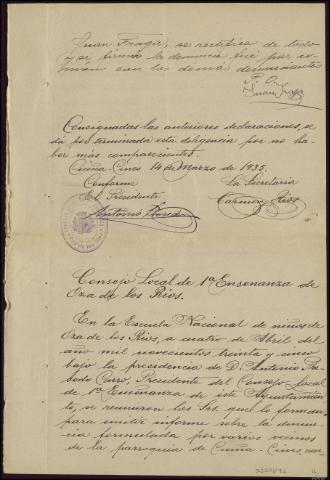 Juan Fraga, se rectifica de todo
y se firmó la denuncia fué por co-
mún con los demás denunciantes
P. O.
Juan Fraga
Consignadas las anteriores declaraciones, se
dá por terminada esta diligencia por no ha-
ber más comparecientes.
Cuiña Cines 14 de Marzo de 1935.
Conforme La Secretaria
El Presidente Carmen Rios
Antonio
Consejo Local de 1ª Enseñanza de
Oza de los Rios.
En la Escuela Nacional de niños de
Oza de los Rios, a cuatro de Abril del
año mil novecientos treinta y cinco
bajo la presidencia de D. Antonio
Carro, Presidente del Consejo Local
de 1ª Enseñanza de este Ayuntamien-
to, se reunieron los Srs. que lo forman
para emitir informe sobre la denun-
cia formulada por varios vecinos
de la parroquia de Cuiña-Cines,